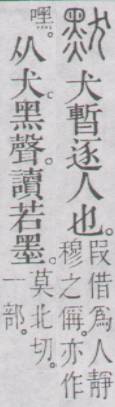 默 犬暫逐人也。叚借爲人靜
穆之偁。亦作
嘿。从犬。黑聲。讀若墨。莫北切。
一部。